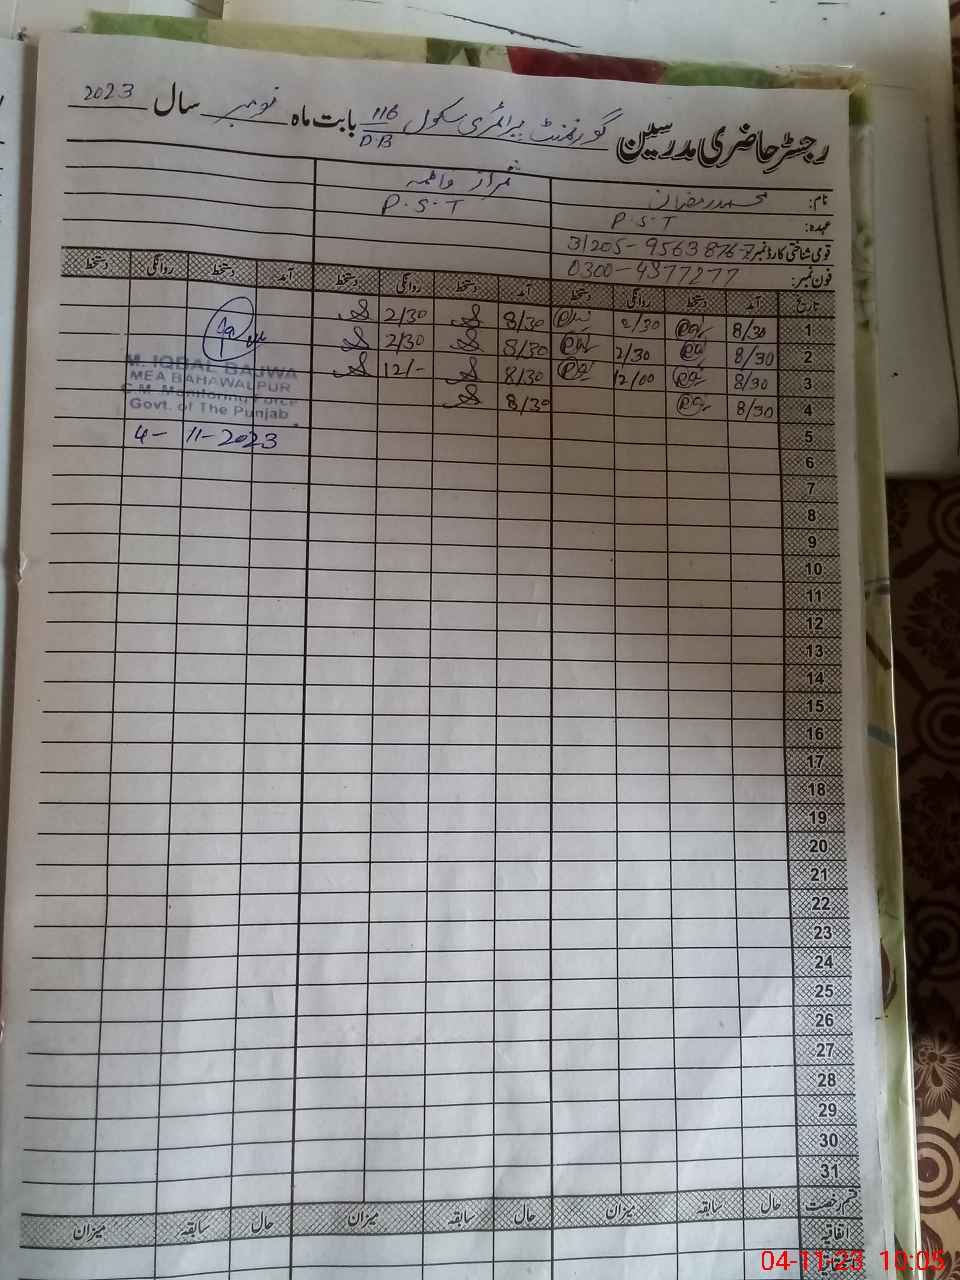 رجسٹر حاضری مدرسین گورنمنٹ پرائمری سکول 116/DB بابت ماہ نومبر سال 2023
نام: محمد رمضان
عہدہ: P.S.T P.S.T
قومی شناختی کارڈ نمبر 31205-9563876-7
فون نمبر: 0300-4377277
تاریخ آمد دستخط روانگی دستخط آمد دستخط روانگی دستخط آمد دستخط روانگی دستخط
1 8/30 2/30 8/30 2/30
2 8/30 2/30 8/30 2/30
3 8/30 12/00 8/30 12/-
4 8/30 8/30
M. IQBAL BAJWA
MEA BAHAWALPUR
C.M. Monitoring Force
Govt. of The Punjab
4-11-2023
5
6
7
8
9
10
11
12
13
14
15
16
17
18
19
20
21
22
23
24
25
26
27
28
29
30
31
قسم رخصت حال سابقہ میزان حال سابقہ میزان حال سابقہ میزان
اتفاقیہ
04-11-23 10:05